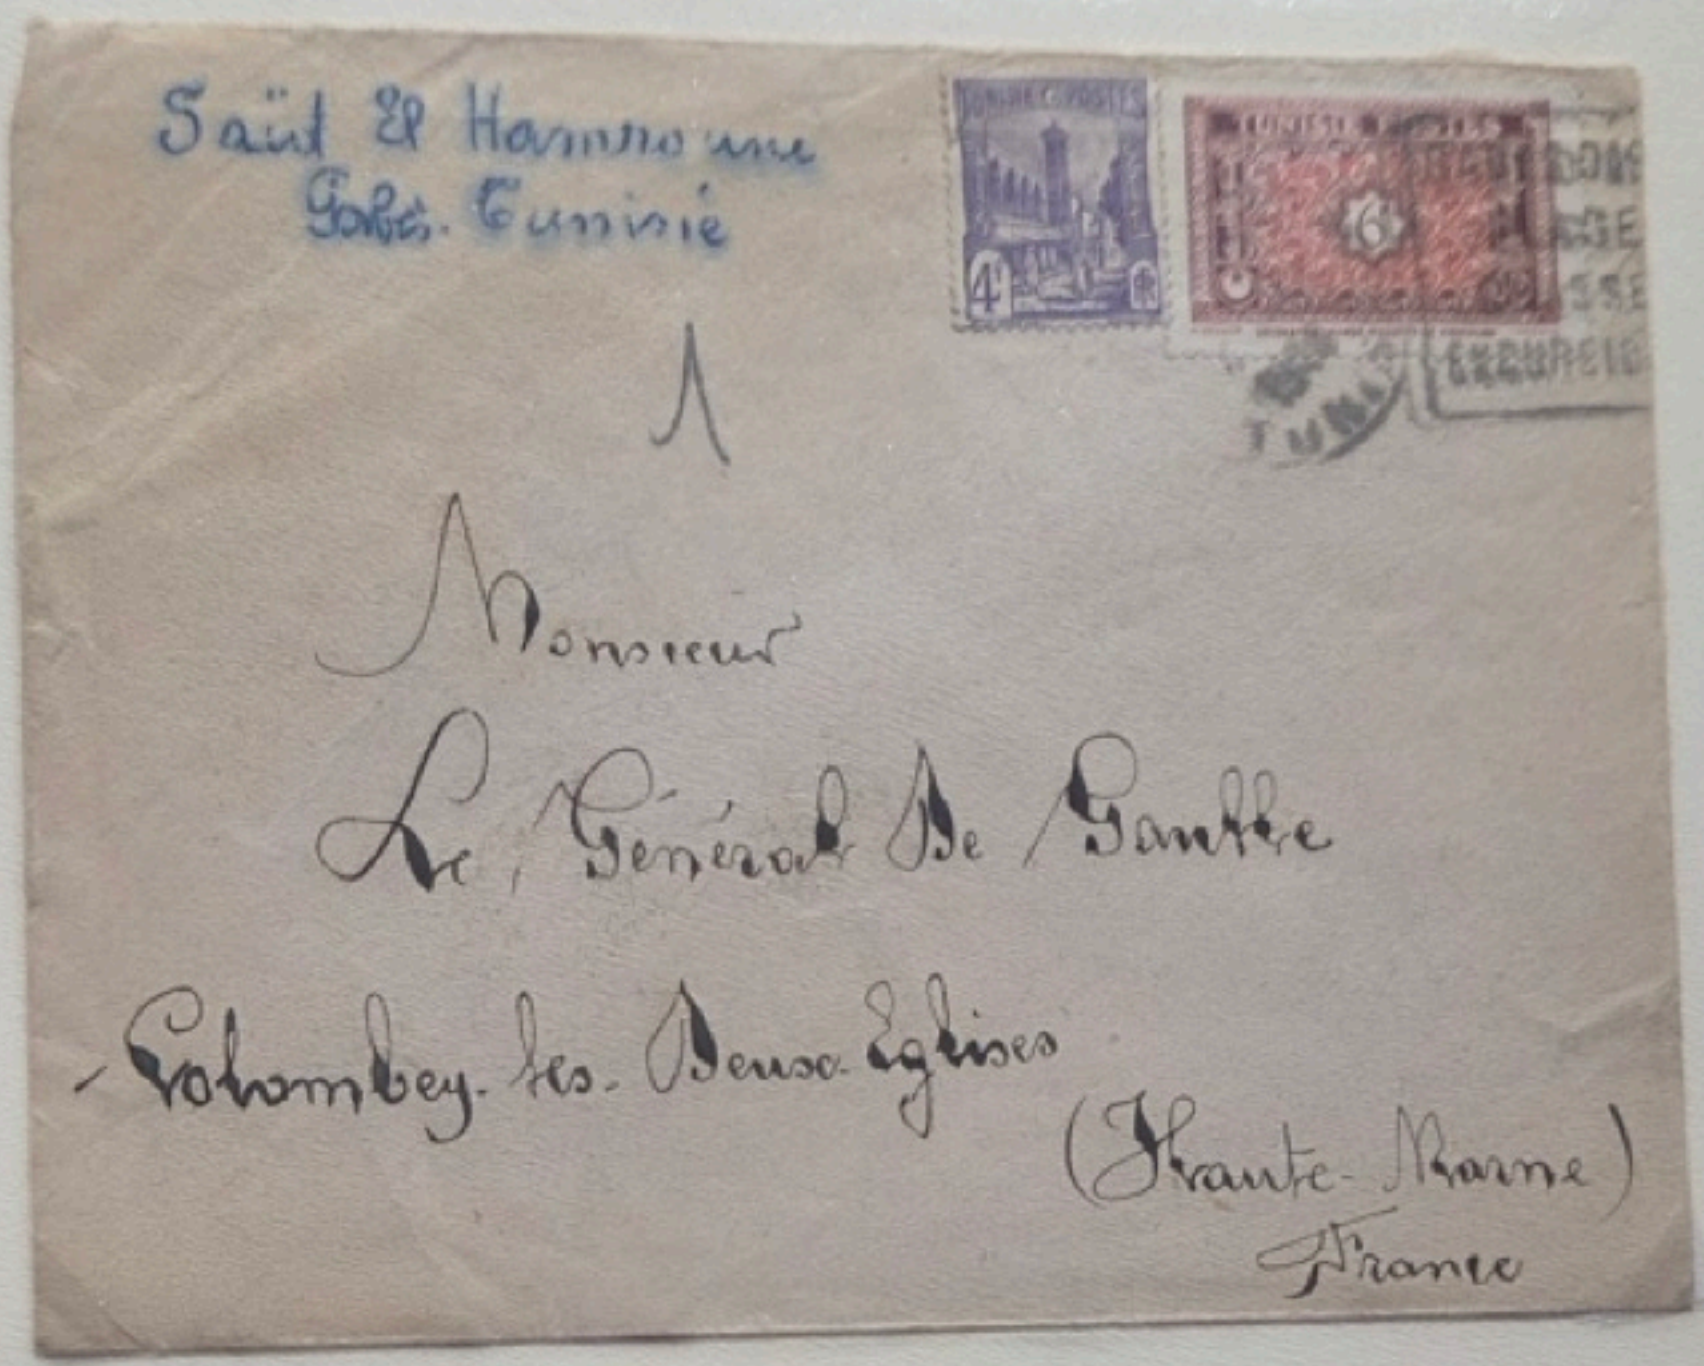 Saïd El Hamrouni
Gabès. Tunisie
TUNISIE POSTES
4F
RF
TUNISIE POSTES
6
TUNIS
A
Monsieur
Le Général De Gaulle
- Colombey-les-Deux-Eglises
(Haute-Marne)
France